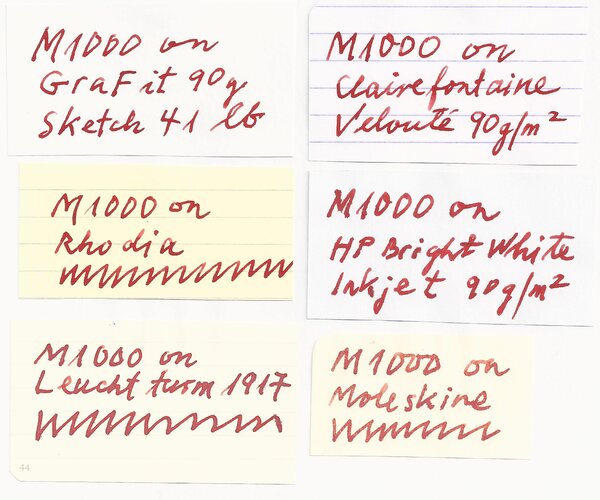 M1000 on
GraFit 90g
Sketch 41 lb
M1000 on
Clairefontaine
Velouté 90g/m²
M1000 on
Rhodia
M1000 on
HP Bright White
Inkjet 90g/m²
M1000 on
Leuchtturm 1917
44
M1000 on
Moleskine